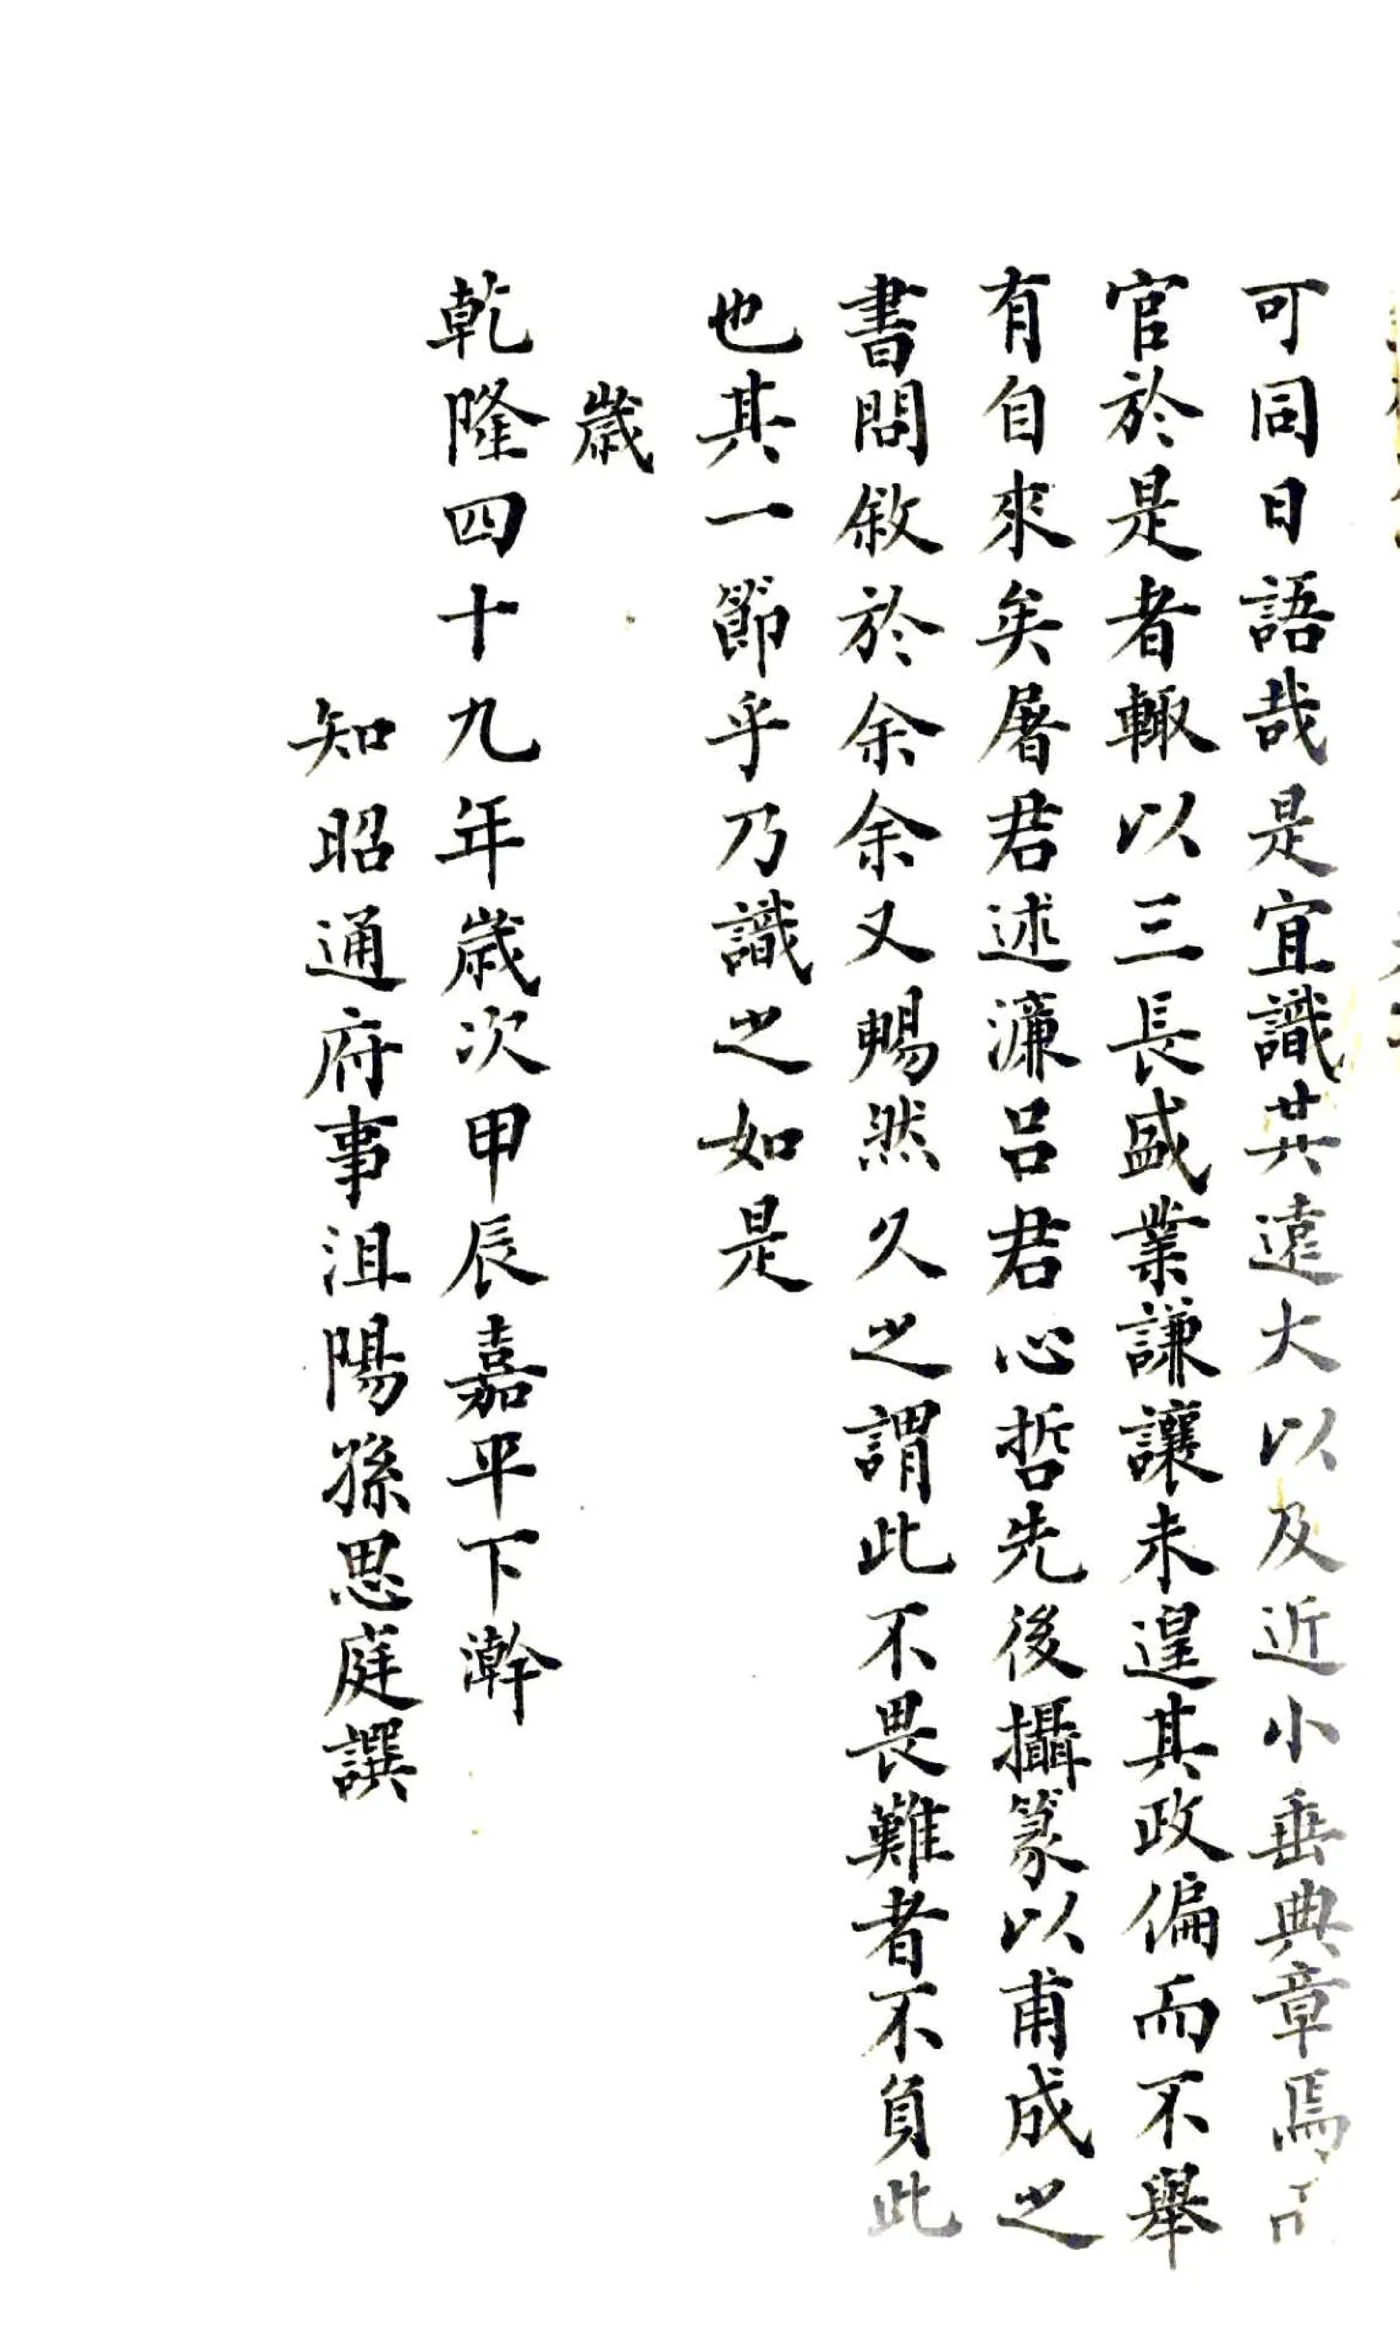 可同日語哉是宜識其遠大以及近小垂典章焉
官於是者輙以三長盛業謙讓未遑其政偏而不舉
有自來矣屠君述濂呂君心哲先後攝篆以甫成之
書問敘於余余又賜然久之謂此不畏難者不負此
也其一節乎乃識之如是
歲
乾隆四十九年歲次甲辰嘉平下澣
知昭通府事沮陽孫思庭譔